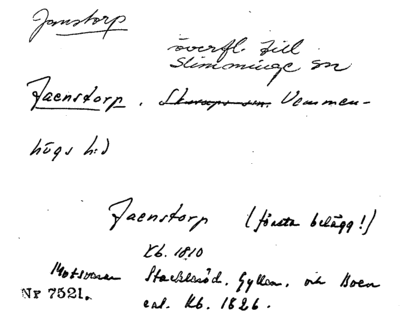 Janstorp
överfl. till
Slimminge sn
Jaenstorp. Skurups sn. Vemmen-
högs hd
Jaenstorp (första belägg!)
Kb. 1810
Motsvarar Stackleröd, Gyllen, och Boen
enl. Kb. 1826.
Nr 7521.